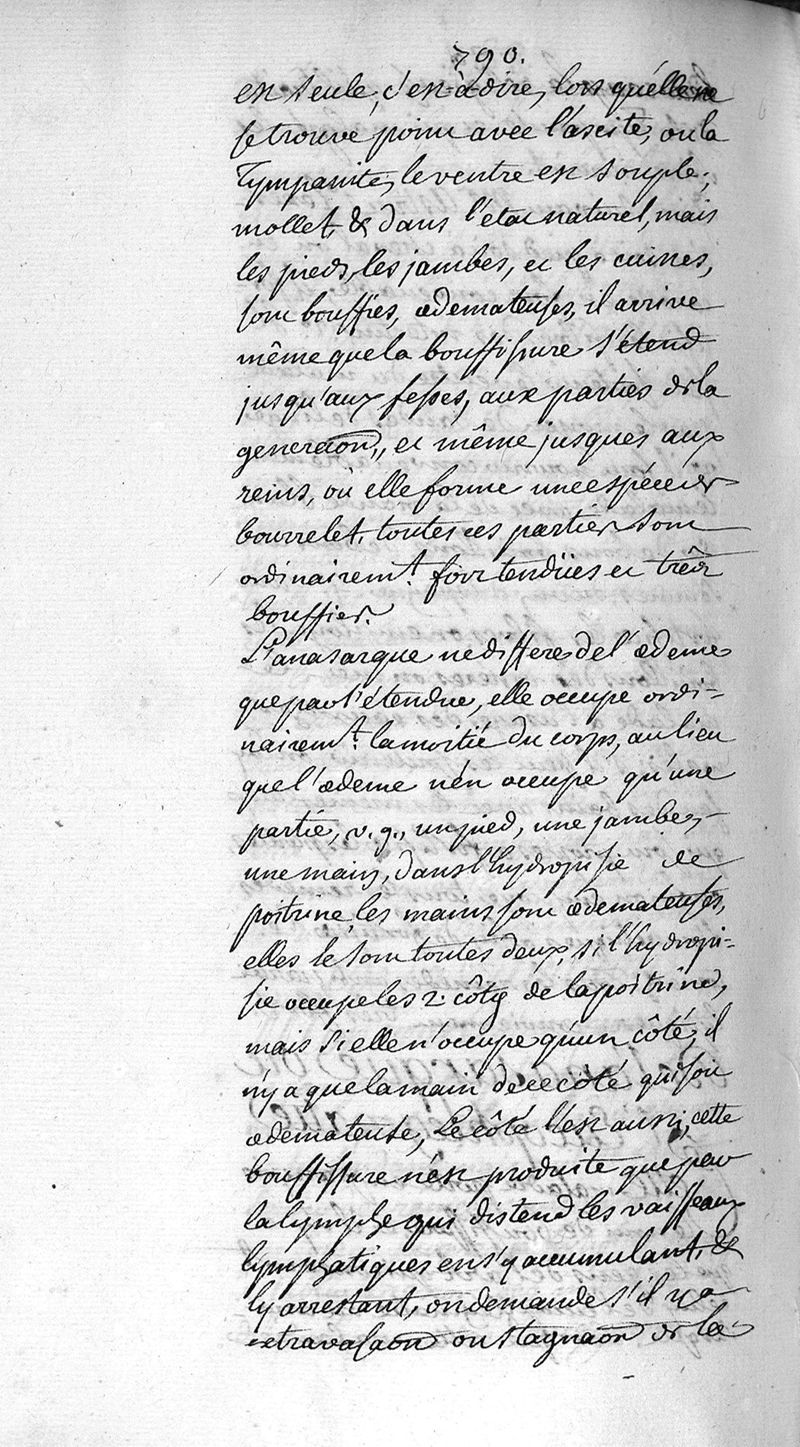 790.
est seule, c'est-à-dire, lors qu'elle ne
se trouve point avec l'ascite, ou la
Tympanite, le ventre est souple,
mollet & dans l'état naturel, mais
les pieds, les jambes, et les cuisses,
sont bouffies, œdemateuses, il arrive
même que la bouffissure s'étend
jusqu'aux fesses, aux parties de la
generaõn, et même jusques aux
reins, où elle forme une espéce de
bourrelet, toutes ces parties sont
ordinairemt. fort tendües et très
bouffies.
L'anasarque ne differe de l'œdeme
que par l'étendue, elle occupe ordi-
nairemt. la moitié du corps, au lieu
que l'œdeme n'en occupe qu'une
partie, v. g., un pied, une jambe,
une main, dans l'hydropisie de
poitrine, les mains sont œdemateuses,
elles le sont toutes deux, si l'hydropi-
sie occupe les 2. côtés de la poitrine,
mais si elle n'occupe qu'un côté, il
n'y a que la main de ce côté qui soit
œdemateuse, Le côté l'est aussi, cette
bouffissure n'est produite que par
la lymphe qui distend les vaisseaux
lymphatiques en s'y accumulant, &
s'y arrestant, on demande s'il y a
extravasaõn ou stagnaõn de la